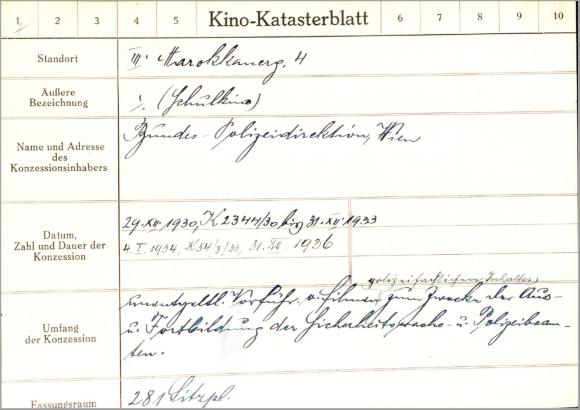 1 2 3 4 5 Kino-Katasterblatt 6 7 8 9 10
Standort
III. Marokkanerg. 4
Äußere
Bezeichnung
./. (Schulkino)
Name und Adresse
des
Konzessionsinhabers
Bundes-Polizeidirektion, Wien
Datum,
Zahl und Dauer der
Konzession
29. XII. 1930, K 2344/30 bis 31. XII. 1933
4. I. 1934, K 54/3/33, 31. XII. 1936
Umfang
der Konzession
polizeifachlichen Inhaltes
Unentgeltl. Vorführ. v. Filmen zum Zwecke der Aus-
u. Fortbildung der Sicherheitswache- u. Polizeibeam-
ten.
Fassungsraum
281 Sitzpl.